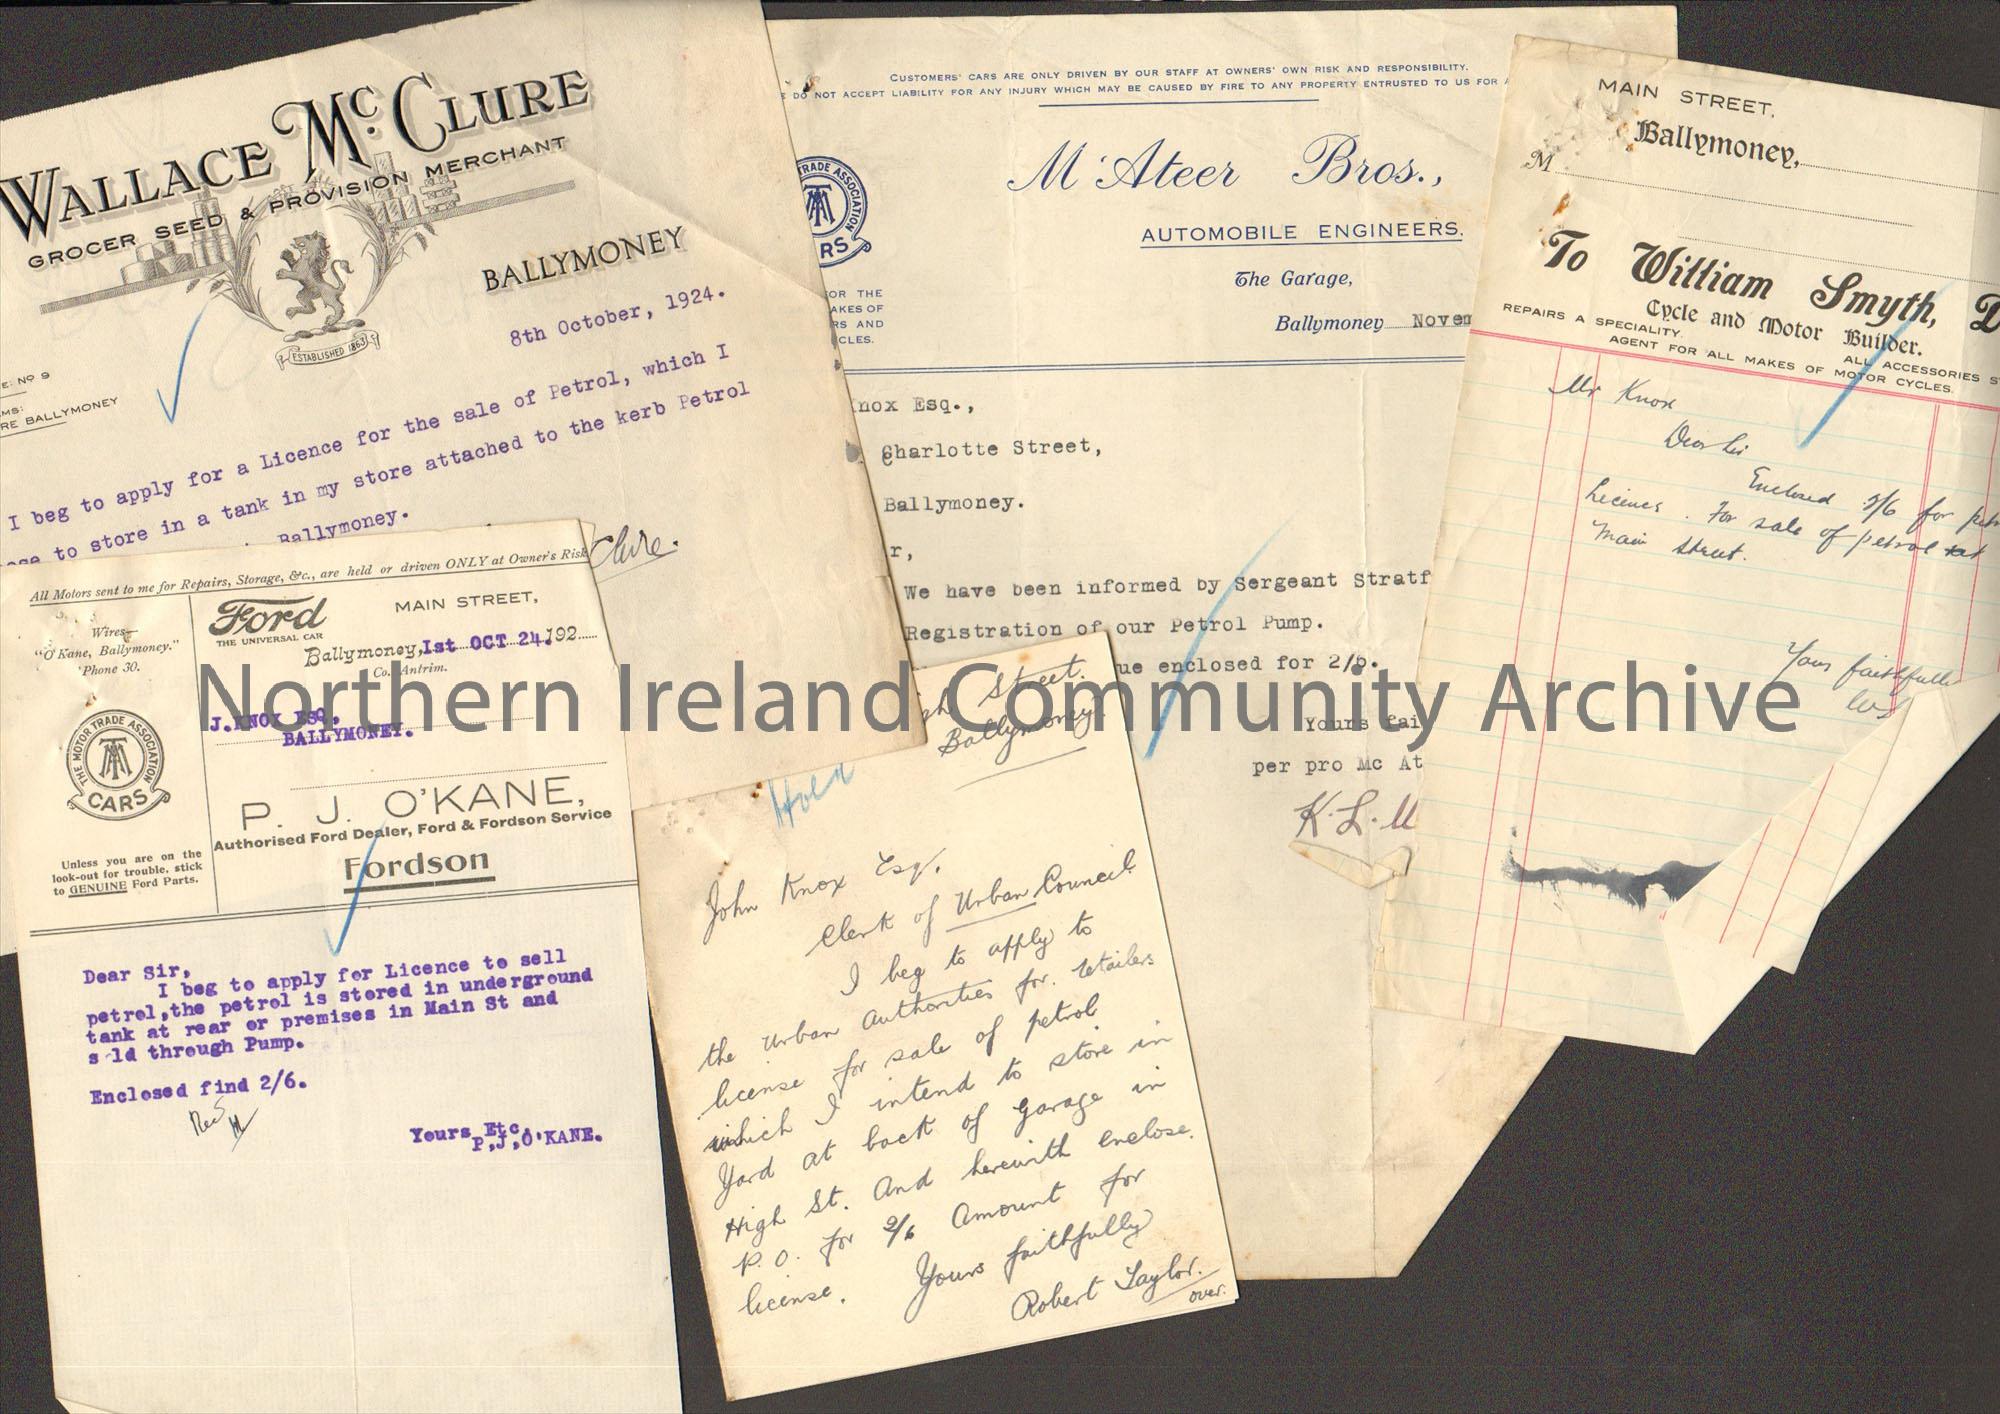 WALLACE McCLURE
GROCER SEED & PROVISION MERCHANT
BALLYMONEY
ESTABLISHED 1863
E: No 9
MS:
RE BALLYMONEY
8th October, 1924.
I beg to apply for a Licence for the sale of Petrol, which I
ose to store in a tank in my store attached to the kerb Petrol
Ballymoney.
Clure.
All Motors sent to me for Repairs, Storage, &c., are held or driven ONLY at Owner's Risk
Wires—
"O'Kane, Ballymoney."
'Phone 30.
Ford
THE UNIVERSAL CAR
MAIN STREET,
Ballymoney, 1st OCT 24. 192
Co. Antrim.
J.KNOX ESQ.
BALLYMONEY.
THE MOTOR TRADE ASSOCIATION
MTA
CARS
Unless you are on the
look-out for trouble, stick
to GENUINE Ford Parts.
P. J. O'KANE,
Authorised Ford Dealer, Ford & Fordson Service
Fordson
Dear Sir,
I beg to apply for Licence to sell
petrol,the petrol is stored in underground
tank at rear or premises in Main St and
s ld through Pump.
Enclosed find 2/6.
Yours Etc,
P,J,O'KANE.
CUSTOMERS' CARS ARE ONLY DRIVEN BY OUR STAFF AT OWNERS' OWN RISK AND RESPONSIBILITY.
E DO NOT ACCEPT LIABILITY FOR ANY INJURY WHICH MAY BE CAUSED BY FIRE TO ANY PROPERTY ENTRUSTED TO US FOR
TRADE ASSOCIATION
MTA
RS
OR THE
AKES OF
RS AND
CLES.
M'Ateer Bros.,
AUTOMOBILE ENGINEERS.
The Garage,
Ballymoney Novem
nox Esq.,
Charlotte Street,
Ballymoney.
r,
We have been informed by Sergeant Stratf
Registration of our Petrol Pump.
ue enclosed for 2/6.
Yours fai
per pro Mc At
K.L.M
gh Street.
Ballymoney.
Hold
John Knox Esq.
Clerk of Urban Council
I beg to apply to
the Urban Authorities for retailers
license for sale of petrol
which I intend to store in
Yard at back of Garage in
High St. And herewith enclose.
P.O. for 2/6 Amount for
license.
Yours faithfully
Robert Taylor.
over.
MAIN STREET,
Ballymoney,
M
To William Smyth, D
Cycle and Motor Builder.
REPAIRS A SPECIALITY.
ALL ACCESSORIES S
AGENT FOR ALL MAKES OF MOTOR CYCLES.
Mr Knox
Dear Sir
Enclosed 2/6 for petr
Licence. For sale of petrol at
Main Street.
Yours faithfully
Northern Ireland Community Archive